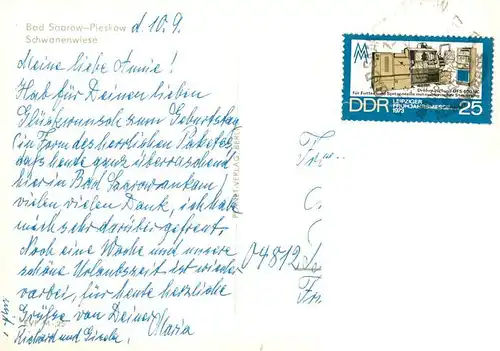 Bad Saarow-Pieskow
Schwanenwiese
d. 10.9.
Meine liebe Annie!
Hab für Deinen lieben
Glückwunsch zum Geburtstag
in Form des herrlichen Paketes,
daß heute ganz überraschend
hier in Bad Saarow ankam,
vielen vielen Dank, ich habe
mich sehr darüber gefreut.
Noch eine Woche und unsere
schöne Urlaubszeit ist wieder
vorbei, für heute herzliche
Grüße von Deiner
Maria
Richard und Gisela.
DDR
LEIPZIGER
FRÜHJAHRSMESSE
1973
25
04812